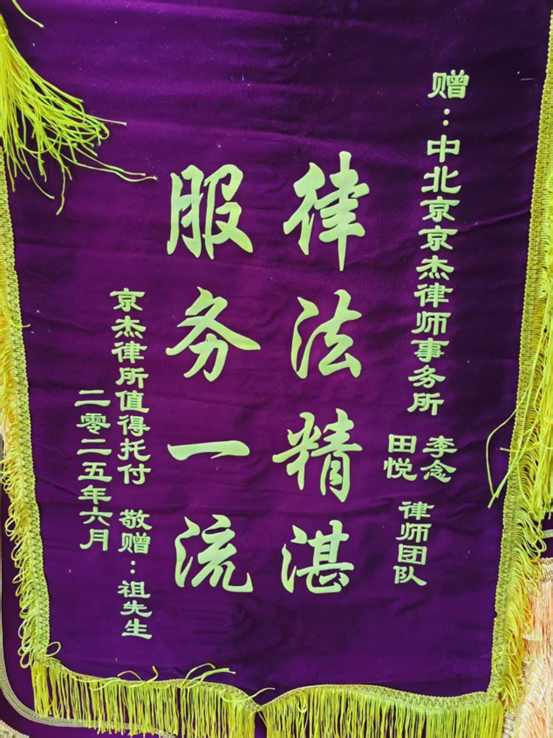 赠：中北京京杰律师事务所
李念
田悦
律师团队
律法精湛
服务一流
京杰律所值得托付 敬赠：祖先生
二零二五年六月